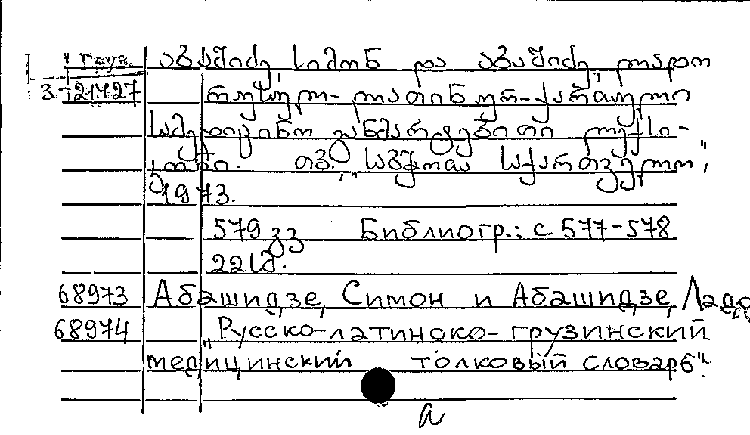 груз. აბაშიძე, სიმონ და აბაშიძე, ლადო
3-21727 რუსულ-ლათინურ-ქართული
სამედიცინო განმარტებითი ლექსი-
კონი. თბ., "საბჭოთა საქართველო",
1973.
579 გვ. Библиогр.: с 577-578
68973 Абашидзе, Симон и Абашидзе, Ладо
68974 "Русско-латиноко-грузинский
медицинский толковый словарь".
а